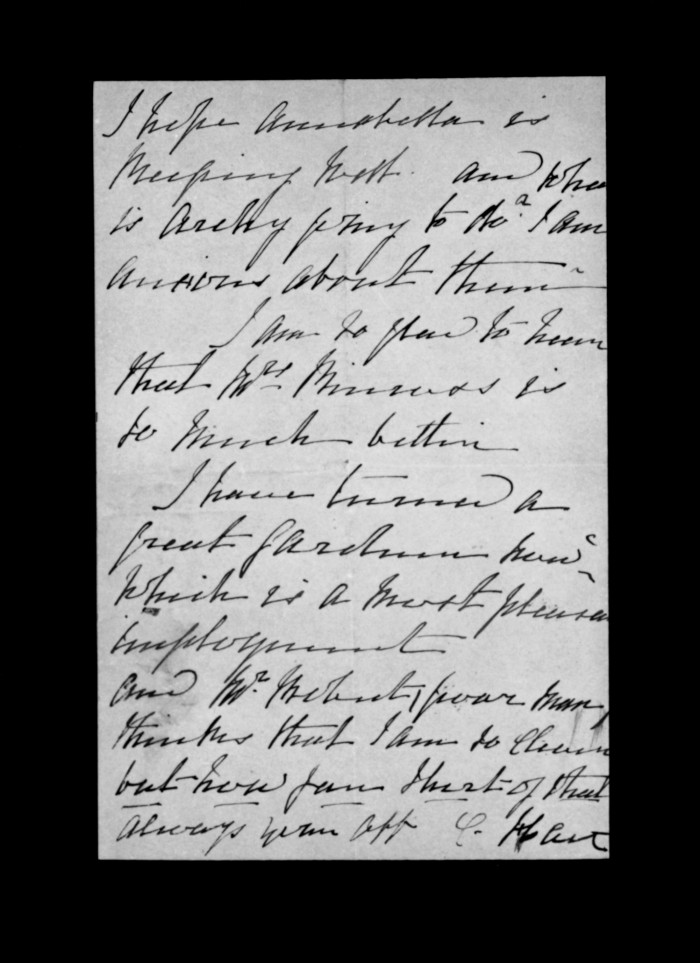 I hope Annabella is
keeping well. and what
is Archy going to do? I am
anxious about them
I am so glad to hear
that Mrs is
so much better
I have turned a
great Gardener now
which is a most pleasa
employment
and Mr. poor man,
thinks that I am so clever
but how far short of that
always your aff C. Hart